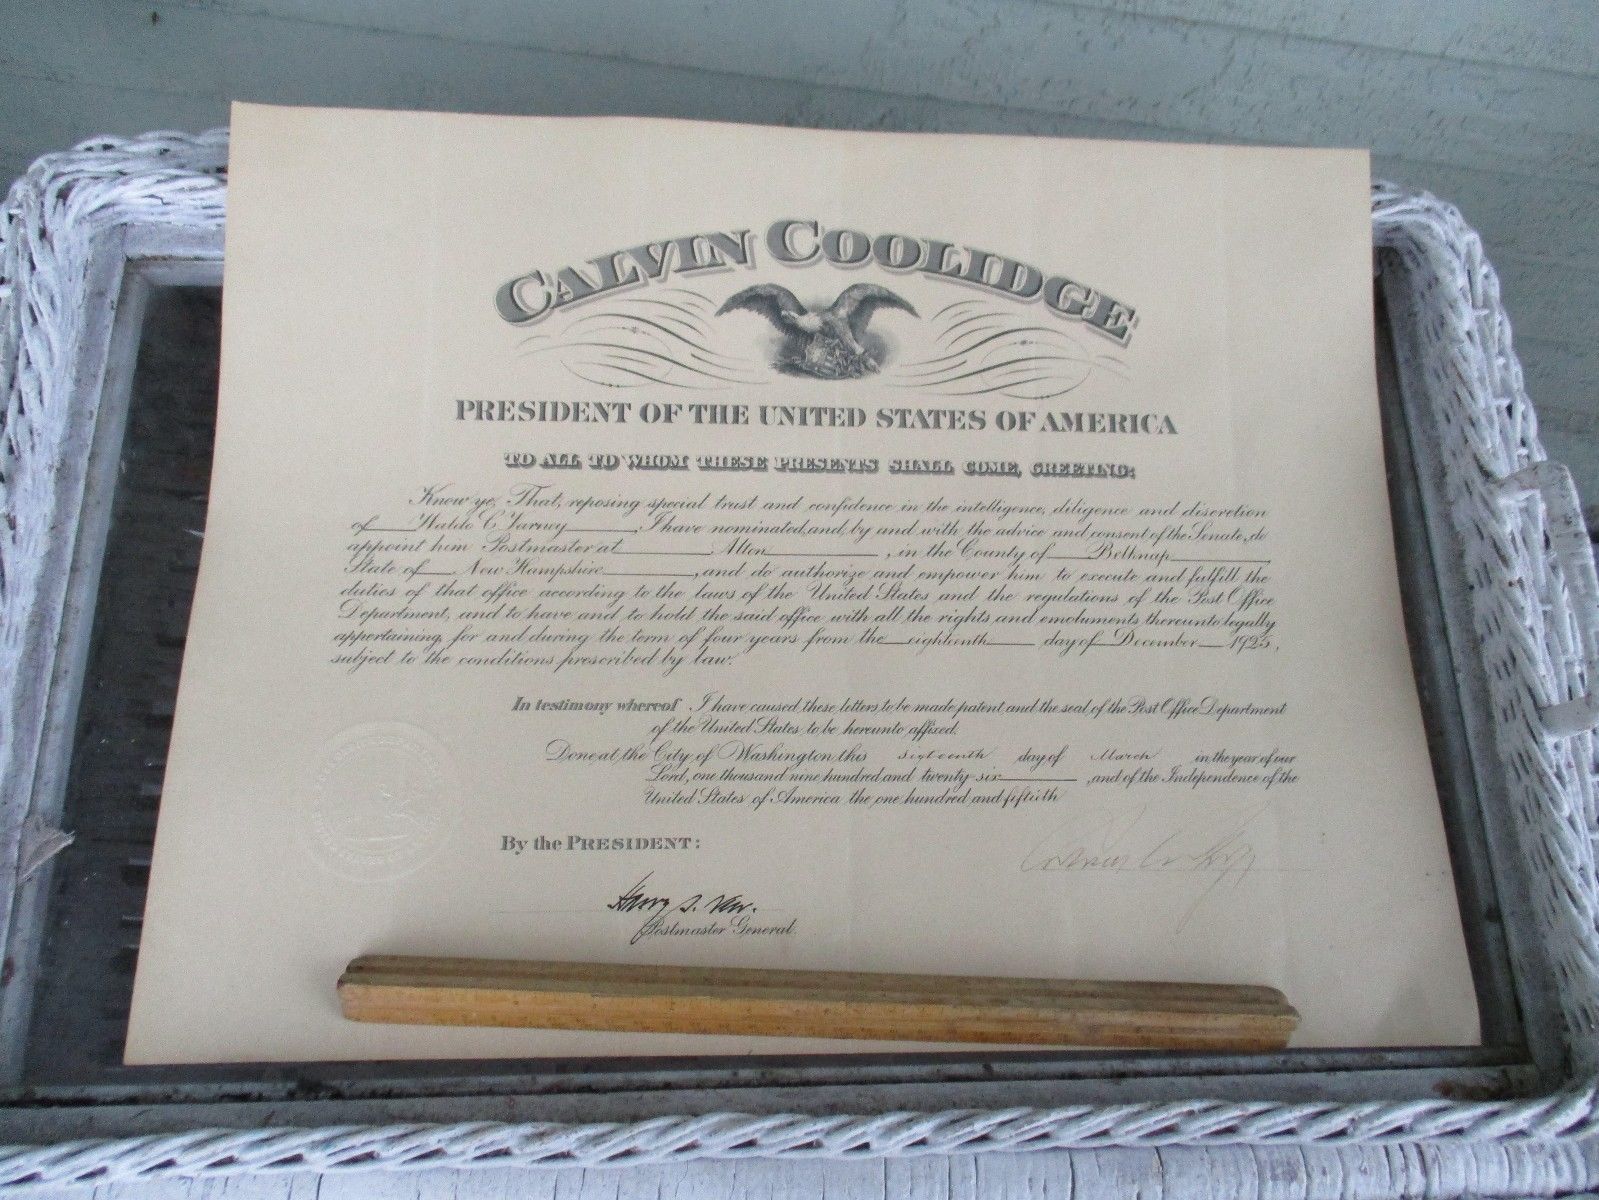 CALVIN COOLIDGE
PRESIDENT OF THE UNITED STATES OF AMERICA
TO ALL TO WHOM THESE PRESENTS SHALL COME, GREETING:
Know ye, That, reposing special trust and confidence in the intelligence, diligence and discretion
of Waldo C. Varney, I have nominated, and, by and with the advice and consent of the Senate, do
appoint him Postmaster at Alton, in the County of Belknap,
State of New Hampshire, and do authorize and empower him to execute and fulfill the
duties of that office according to the laws of the United States and the regulations of the Post Office
Department, and to have and to hold the said office with all the rights and emoluments thereunto legally
appertaining, for and during the term of four years from the eighteenth day of December 1925,
subject to the conditions prescribed by law.
In testimony whereof I have caused these letters to be made patent, and the seal of the Post Office Department
of the United States to be hereunto affixed.
Done at the City of Washington this sixteenth day of March in the year of our
Lord, one thousand nine hundred and twenty six, and of the Independence of the
United States of America the one hundred and fiftieth
By the PRESIDENT:
Harry S. New.
Postmaster General.